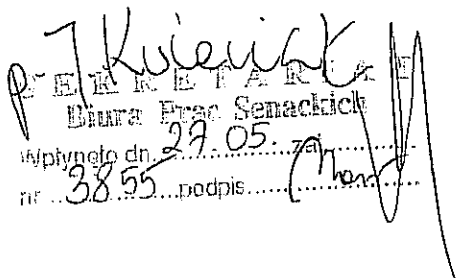 p. J.
SEKRETARIAT
Biura Prac Senackich
Wpłynęło dn. 27.05. zał.
nr 3855 podpis